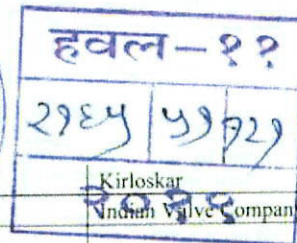 हवल - ११
२१६५ | ५१ | १२१
Kirloskar
२०१६
Indian Valve Compan